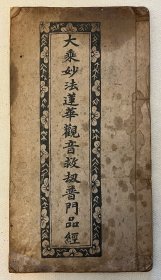 大乘妙法蓮華觀音救拔普門品經